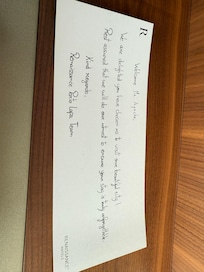 R
Welcome Mr
We are delighted you have chosen us to visit our beautiful city!
Rest assured that we will do our utmost to ensure your stay is truly unforgettable.
Kind regards,
Renaissance Porto Lapa Team
RENAISSANCE
HOTELS